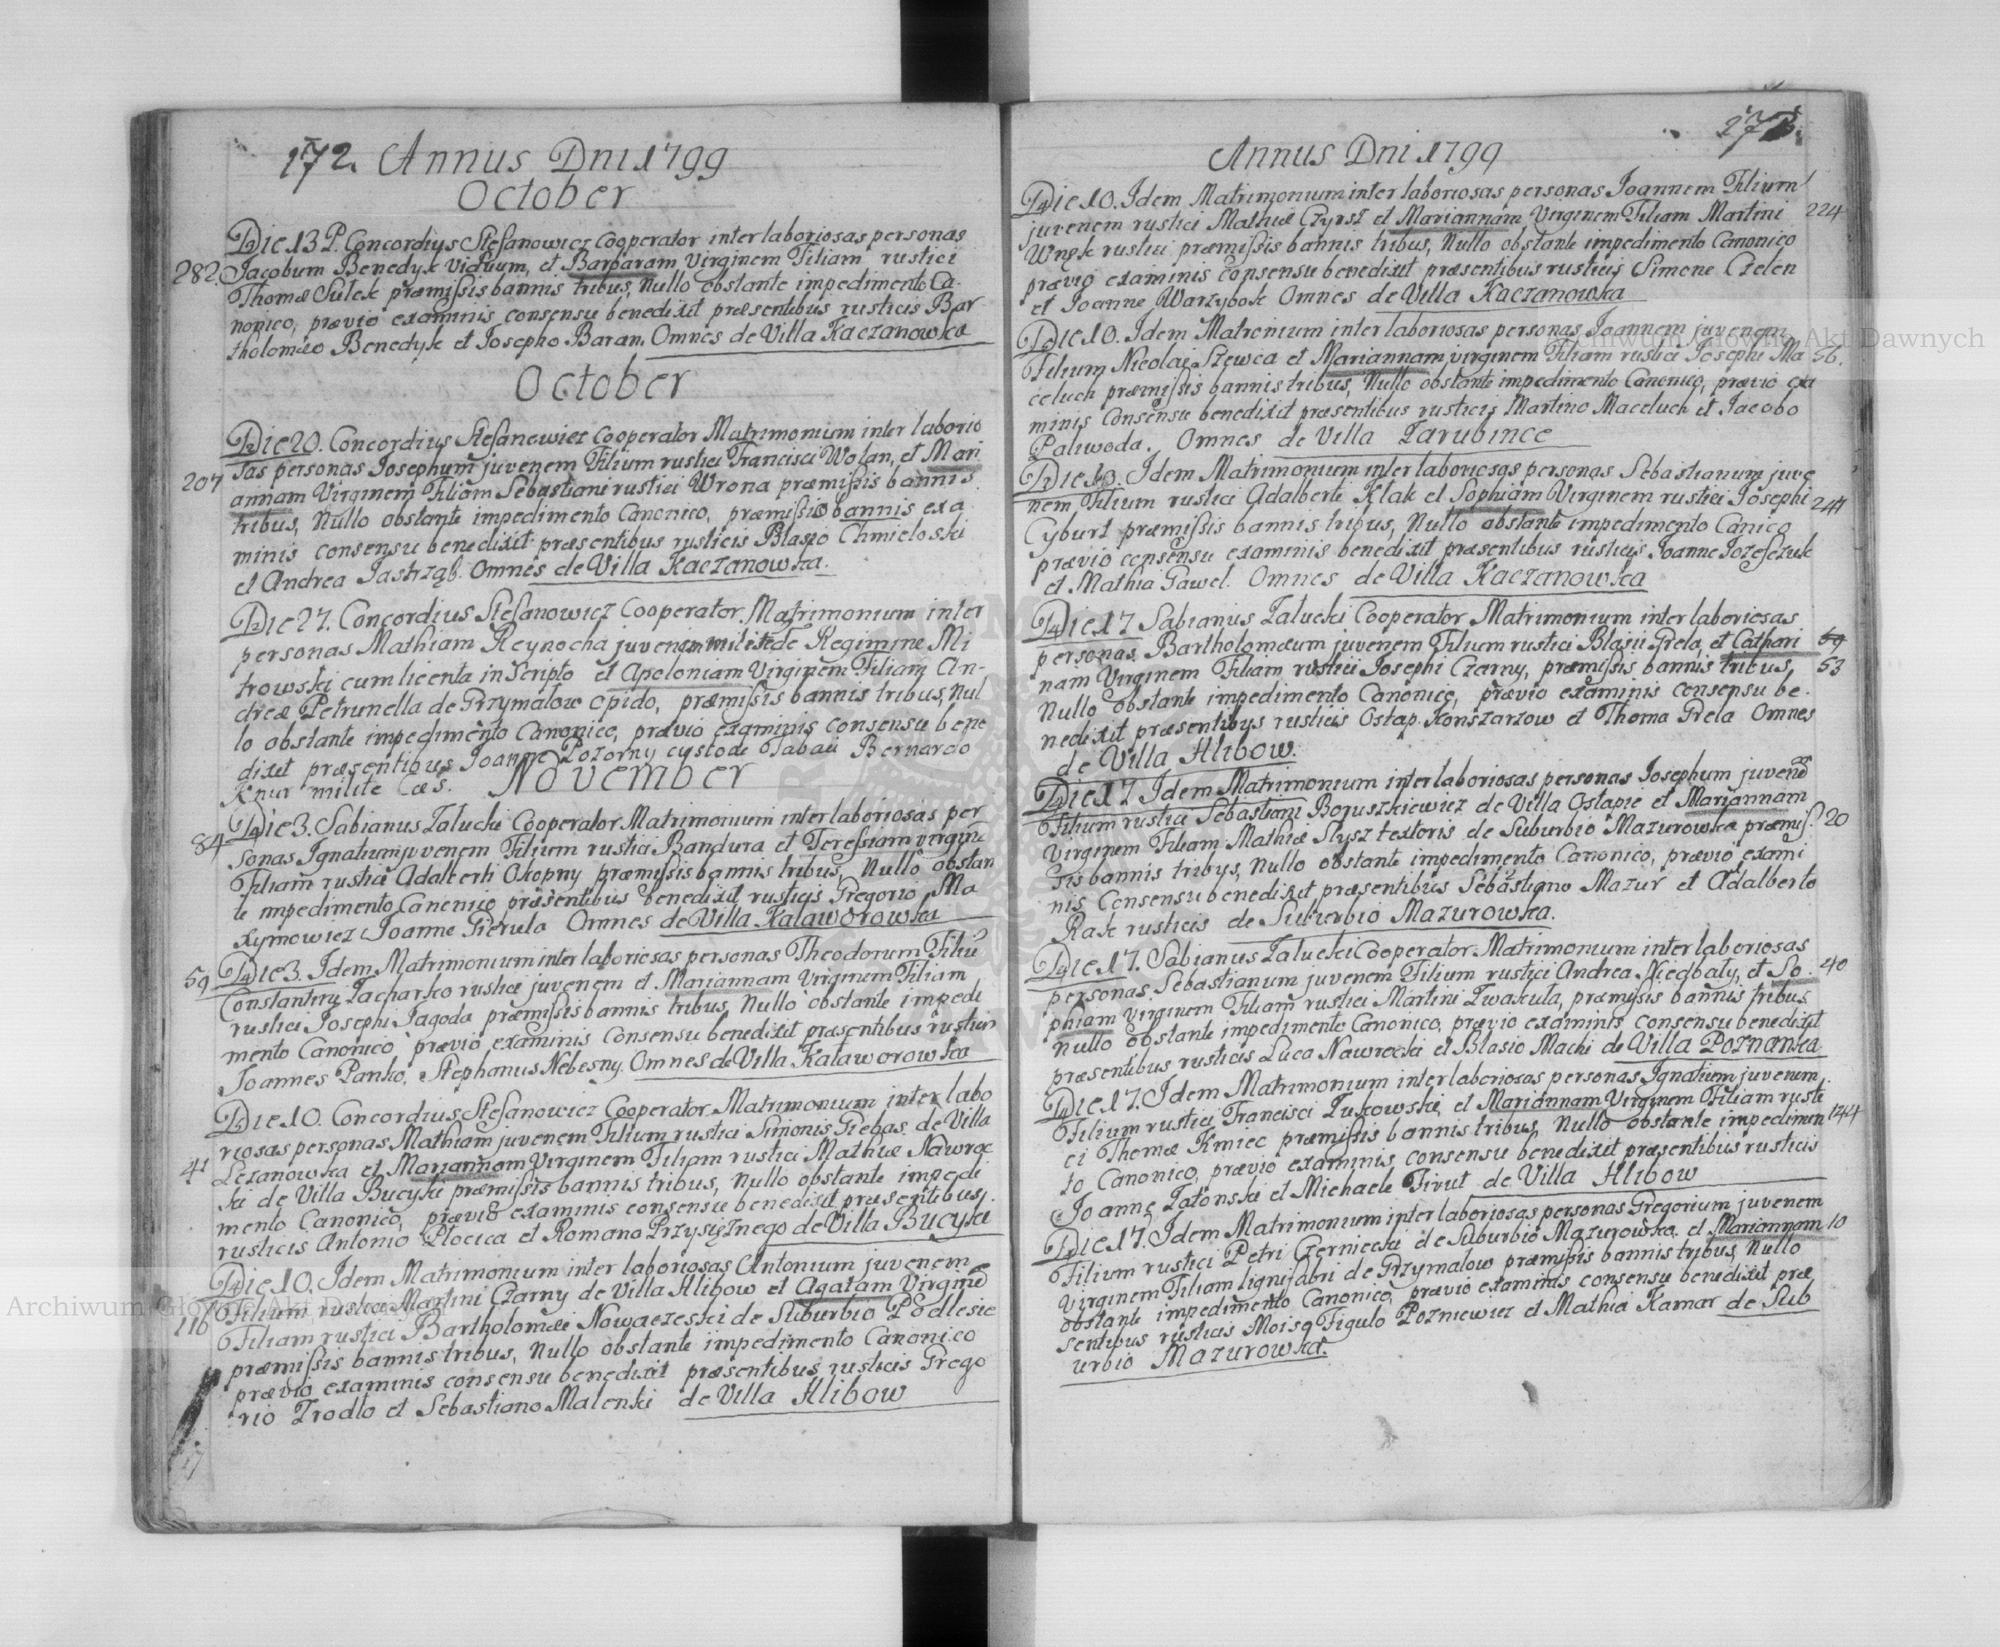 172. Annus Dni 1799
October
Die 13 P. Concordius Stefanowicz Cooperator inter laboriosas personas
282. Jacobum Benedyk Viduum, et Barbaram Virginem Filiam rustici
Thomæ Sulek præmissis bannis tribus, Nullo obstante impedimento Ca-
nonico, prævio examinis consensu benedixit præsentibus rusticis Bar
tholomæo Benedyk et Josepho Baran. Omnes de Villa Kaczanowka
October
Die 20. Concordius Stefanowicz Cooperator Matrimonium inter laborio
207 sas personas Josephum juvenem Filium rustici Francisci Wolan, et Mari
annam Virginem Filiam Sebastiani rustici Wrona præmissis bannis
tribus, Nullo obstante impedimento Canonico, præmissio bannis exa
minis consensu benedixit præsentibus rusticis Blasio Chmieloski
et Andrea Jastrząb. Omnes de Villa Kaczanowka.
Die 27. Concordius Stefanowicz Cooperator Matrimonium inter
personas Mathiam Reynocha juvenem milite de Regimine Mi
trowski cum licentia in Scripto et Apoloniam Virginem Filiam An-
dreæ Petrunella de Grzymalow opido, præmissis bannis tribus, Nul
lo obstante impedimento Canonico, prævio examinis consensu bene
dixit præsentibus Joanne Pozorny custode Tabaci Bernardo
Knur milite Cæs. November
84 Die 3. Sabianus Zalucki Cooperator Matrimonium inter laboriosas per
sonas Ignatium juvenem Filium rustici Bandura et Teressiam virginē
Filiam rustici Adalberti Okopny præmissis bannis tribus, Nullo obstan
te impedimento Canonico præsentibus benedixit rusticis Gregorio Ma
xymowicz Joanne Pierula Omnes de Villa Kalaworowka
59 Die 3. Idem Matrimonium inter laboriosas personas Theodorum Filiū
Constantiny Zacharko rustici juvenem et Mariannam Virginem Filiam
rustici Josephi Jagoda præmissis bannis tribus, Nullo obstante impedi
mento Canonico prævio examinis consensu benedixit præsentibus rusticis
Joannes Panko, Stephanus Nebesny. Omnes de Villa Kalaworowka
Die 10. Concordius Stefanowicz Cooperator Matrimonium inter labo
riosas personas Mathiam juvenem Filium rustici Simonis Giebas de Villa
41 Lezanowka et Mariannam Virginem Filiam rustici Mathiæ Nawroc
ki de Villa Bucyki præmissis bannis tribus, Nullo obstante impedi
mento Canonico, prævio examinis consensu benedixit præsentibus
rusticis Antonio Plocica et Romano Przysiężnego de Villa Bucyki
Die 10. Idem Matrimonium inter laboriosas Antonium juvenem
116 Filium rustici Martini Czarny de Villa Hlibow et Agatam Virginē
Filiam rustici Bartholomæi Nowaczeski de Suburbio Podlesie
præmissis bannis tribus, Nullo obstante impedimento Canonico
prævio examinis consensu benedixit præsentibus rusticis Grego
rio Trodlo et Sebastiano Malenki de Villa Hlibow
173.
Annus Dni 1799
Die 10. Idem Matrimonium inter laboriosas personas Joannem Filium
juvenem rustici Mathiæ Czyrsz et Mariannam Virginem Filiam Martini 224
Wnęk rustici præmissis bannis tribus, Nullo obstante impedimento Canonico
prævio examinis consensu benedixit præsentibus rusticis Simone Czelen
et Joanne Warzybok Omnes de Villa Kaczanowka
Die 10. Idem Matronium inter laboriosas personas Joannem juvenem
Filium Nicolai Szewca et Mariannam virginem Filiam rustici Josephi Ma 56.
celuch præmissis bannis tribus, Nullo obstante impedimento Canonico, prævio exa
minis consensu benedixit præsentibus rusticis Martino Maceluch et Jacobo
Paliwoda. Omnes de Villa Zarubince
Die 10. Idem Matrimonium inter laboriosas personas Sebastianum juve
nem Filium rustici Adalberti Kłak et Sophiam Virginem rustici Josephi 244
Cyburt præmissis bannis tribus, Nullo obstante impedimento Canico
prævio consensu examinis benedixit præsentibus rusticis Joanne Jozefczuk
et Mathia Gawel. Omnes de Villa Kaczanowka
Die 17 Sabianus Zalucki Cooperator Matrimonium inter laboriosas
personas Bartholomæum juvenem Filium rustici Blasii Grela, et Cathari 69
nam Virginem Filiam rustici Josephi Czarny, præmissis bannis tribus, 53
Nullo obstante impedimento Canonico, prævio examinis consensu be-
nedixit præsentibus rusticis Ostap. Konszarzow et Thoma Grela Omnes
de Villa Hlibow.
Die 17 Idem Matrimonium inter laboriosas personas Josephum juvenē
Filium rustici Sebastiani Boguszkiewicz de Villa Ostapie et Mariannam
Virginem Filiam Mathiæ Slysz textoris de Suburbio Mazurowka præmis 20
sis bannis tribus, Nullo obstante impedimento Canonico, prævio exami
nis consensu benedixit præsentibus Sebastiano Mazur et Adalberto
Rak rusticis de Suburbio Mazurowka.
Die 17. Sabianus Zalucki Cooperator Matrimonium inter laboriosas
personas Sebastianum juvenem Filium rustici Andrea Niedbały, et So 40
phiam virginem Filiam rustici Martini Zwakula, præmissis bannis tribus
Nullo obstante impedimento Canonico, prævio examinis consensu benedixit
præsentibus rusticis Luca Nawrocki et Blasio Machi de Villa Poznanka
Die 17. Idem Matrimonium inter laboriosas personas Ignatium juvenem
Filium rustici Francisci Zukowski, et Mariannam Virginem Filiam rusti
ci Thomæ Kmiec præmissis bannis tribus, Nullo obstante impedimen 144
to Canonico, prævio examinis consensu benedixit præsentibus rusticis
Joanne Zatonski et Michaele Firut de Villa Hlibow
Die 17. Idem Matrimonium inter laboriosas personas Gregorium juvenem
Filium rustici Petri Czerniecki de Suburbio Mazurowka et Mariannam 10
Virginem Filiam lignifabri de Grzymalow præmissis bannis tribus, Nullo
obstante impedimento Canonico, prævio examinis consensu benedixit præ
sentibus rusticis Moisa Figulo Pozniewicz et Mathia Kamar de Sub
urbio Mazurowka.
Archiwum Główne Akt Dawnych
Archiwum Główne Akt Dawnych